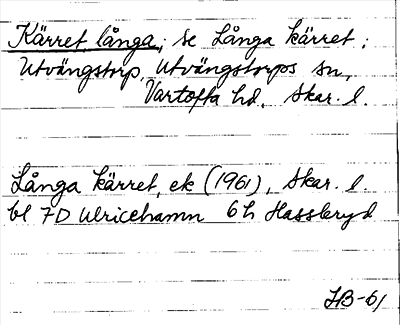 Kärret, långa, ; se Långa kärret ;
Utvängstorp, Utvängstorps sn,
Vartofta hd, Skar. l.
Långa kärret, ek (1961), Skar. l.
bl 7D Ulricehamn 6h Hassleryd
IB-61